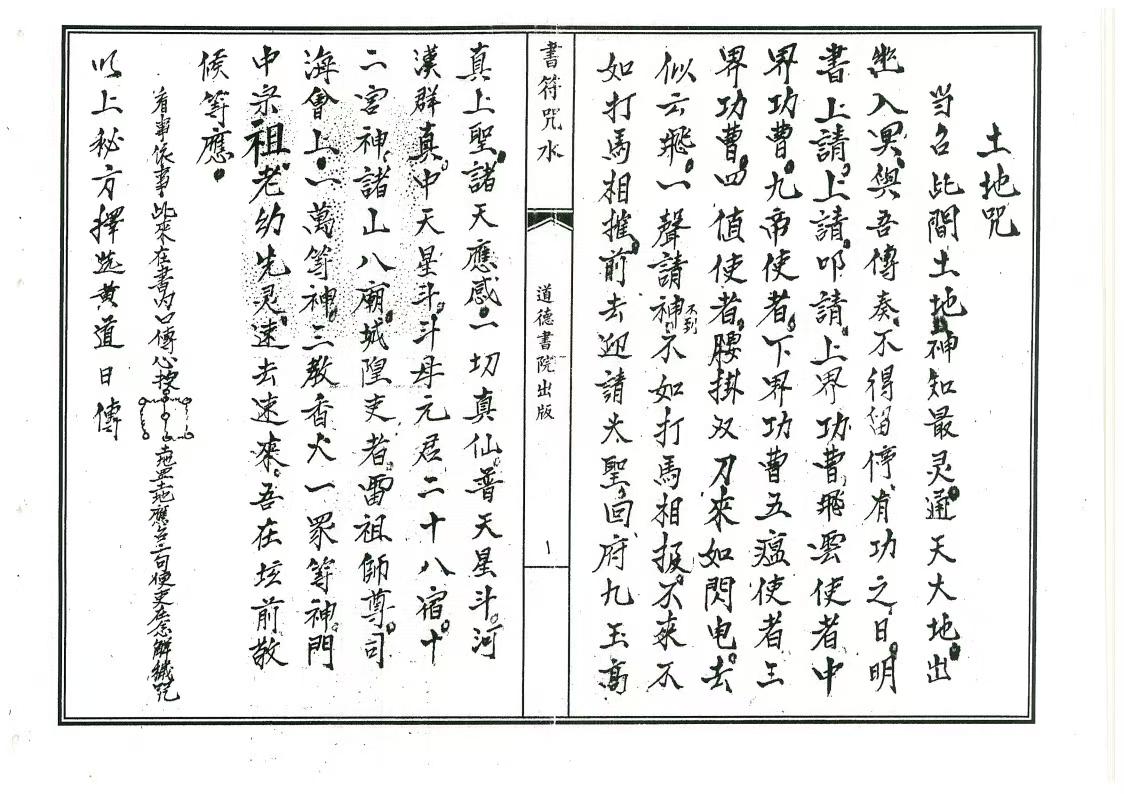 土地咒
当召此間土地神知最灵通天大地出
幽入冥與吾傳奏不得留停有功之日明
書上請上請叩請上界功曹飛雲使者中
界功曹九帝使者下界功曹五瘟使者三
界功曹四值使者腰掛双刀來如閃电去
似云飛一聲請神不到不如打馬相报不來不
如打馬相摧前去迎請大聖回府九玉高
書符咒水
道德書院出版
1
真上聖諸天應感一切真仙普天星斗河
漢群真中天星斗斗母元君二十八宿十
二宫神諸山八廟城隍吏者雷祖師尊司
海會上一萬等神三教香火一眾等神門
中宗祖老幼先灵速去速來吾在坛前敬
候等應
看事依事此來在書为口傳心授
地皿地應召二句便吏在怎解織咒
以上秘方擇选黄道日傳